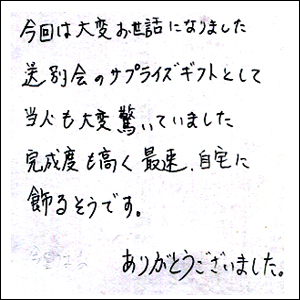 今回は大変お世話になりました
送別会のサプライズギフトとして
当人も大変驚いていました
完成度も高く最速、自宅に
飾るそうです。
ありがとうございました。